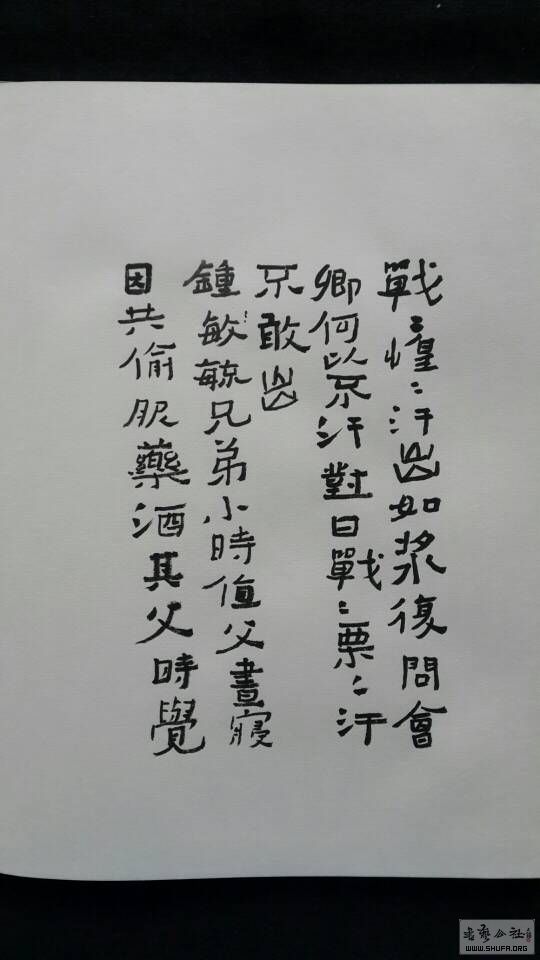 戰〻惶〻汗出如漿復問會
卿何以不汗對曰戰〻栗〻汗
不敢出
鍾毓毓兄弟小時值父晝寢
因共偷服藥酒其父時覺
WWW.SHUFA.ORG